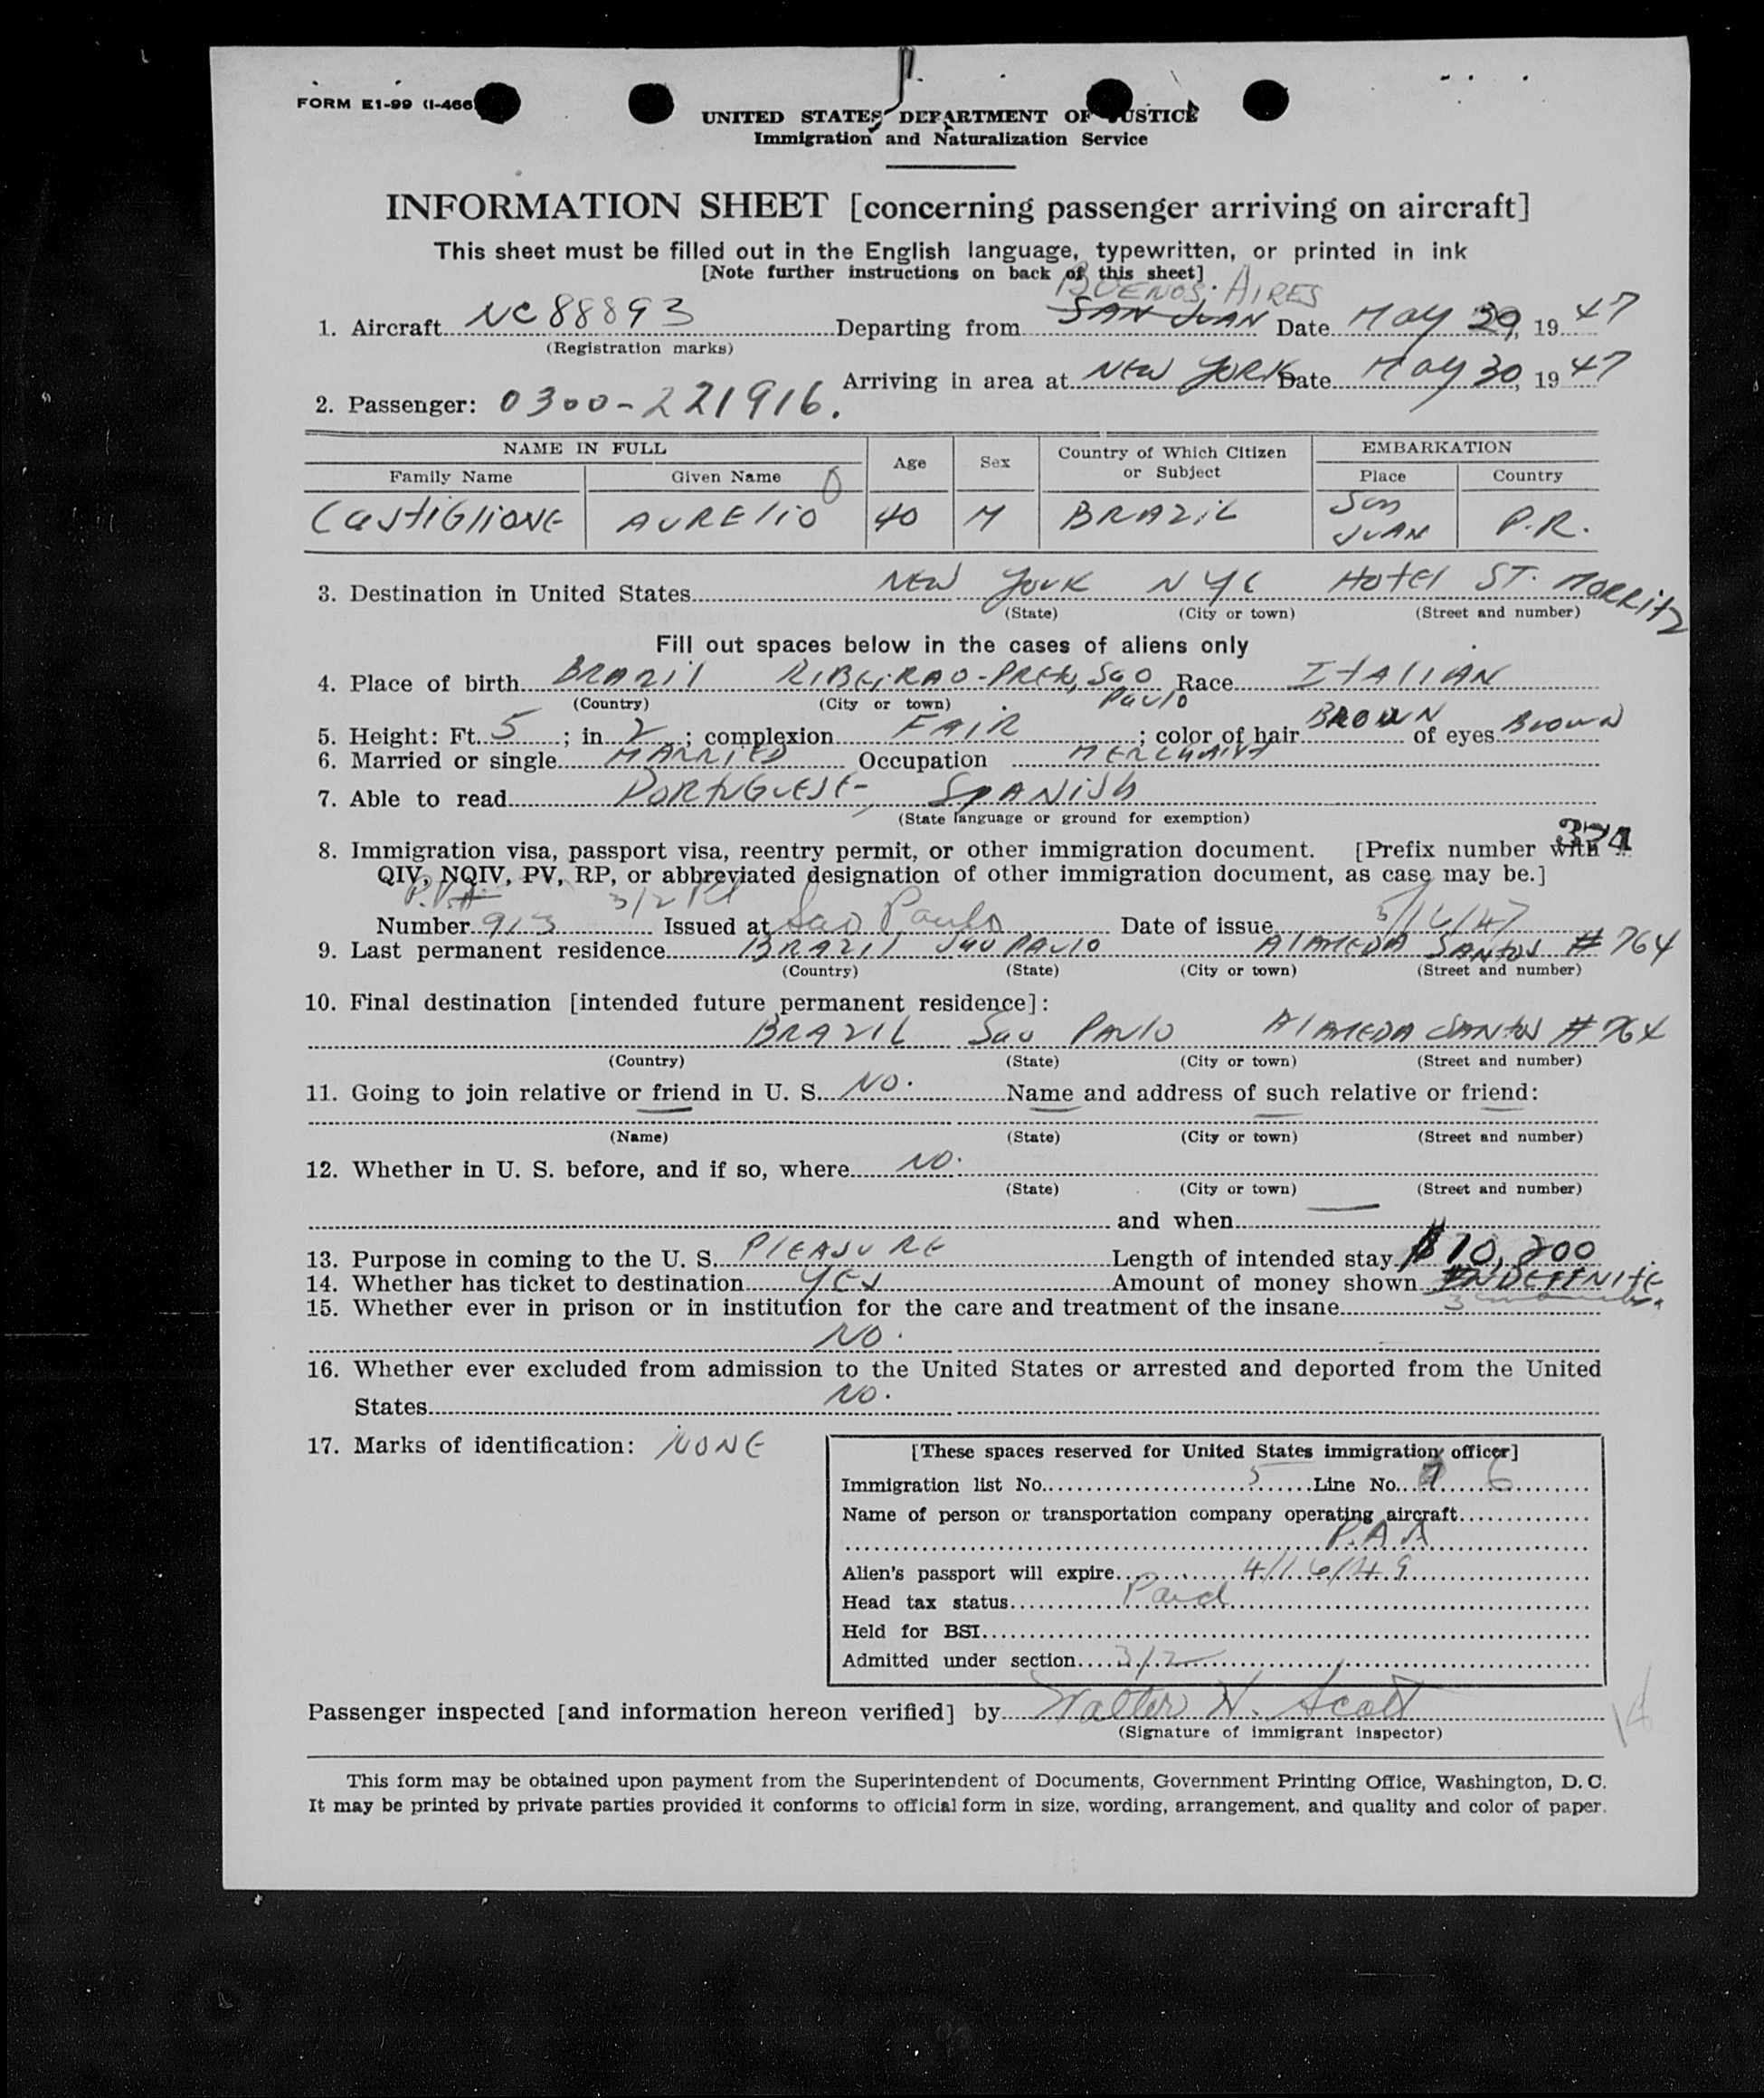 FORM E1-99 (I-466
UNITED STATES DEPARTMENT OF JUSTICE
Immigration and Naturalization Service
INFORMATION SHEET [concerning passenger arriving on aircraft]
This sheet must be filled out in the English language, typewritten, or printed in ink
[Note further instructions on back of this sheet]
BUENOS AIRES
1. Aircraft NC 88893 Departing from SAN JUAN Date May 29, 19 47
(Registration marks)
Arriving in area at NEW YORK Date May 30, 19 47
2. Passenger: 0300-221916.
NAME IN FULL Age Sex Country of Which Citizen or Subject EMBARKATION
Family Name Given Name Place Country
CastiGliONE AURElio 40 M BRAZIL San JUAN P.R.
3. Destination in United States NEW YORK NYC HOTEl ST. MORRITZ
(State) (City or town) (Street and number)
Fill out spaces below in the cases of aliens only
4. Place of birth BRAZIl RIBEIRAO-PRETO, SAO Paulo Race ITAlIAN
(Country) (City or town)
5. Height: Ft. 5; in 2; complexion FAIR; color of hair BROWN of eyes Brown
6. Married or single MARRIED Occupation MERCHANT
7. Able to read PORTUGUESE- SPANISH
(State language or ground for exemption)
374
8. Immigration visa, passport visa, reentry permit, or other immigration document. [Prefix number with
QIV, NQIV, PV, RP, or abbreviated designation of other immigration document, as case may be.]
P.V.# 3/2
Number 913 Issued at Sao Paulo Date of issue 5/16/47
9. Last permanent residence BRAZIl SAO PAUlO AlAMEDA SANTOS # 764
(Country) (State) (City or town) (Street and number)
10. Final destination [intended future permanent residence]:
BRAZIL Sao PAUlO AlAMEDA SANTOS # 764
(Country) (State) (City or town) (Street and number)
11. Going to join relative or friend in U. S. NO. Name and address of such relative or friend:
(Name) (State) (City or town) (Street and number)
12. Whether in U. S. before, and if so, where NO.
(State) (City or town) (Street and number)
and when
13. Purpose in coming to the U. S. PlEASURE Length of intended stay $10,200
14. Whether has ticket to destination YES Amount of money shown INDEFINITE
15. Whether ever in prison or in institution for the care and treatment of the insane 3 months.
NO.
16. Whether ever excluded from admission to the United States or arrested and deported from the United
States NO.
17. Marks of identification: NONE
[These spaces reserved for United States immigration officer]
Immigration list No. 5 Line No. 7 6
Name of person or transportation company operating aircraft
P.A.A
Alien's passport will expire 4/16/49
Head tax status Paid
Held for BSI
Admitted under section 3/2
Passenger inspected [and information hereon verified] by Walter W. Scott
(Signature of immigrant inspector)
14
This form may be obtained upon payment from the Superintendent of Documents, Government Printing Office, Washington, D. C.
It may be printed by private parties provided it conforms to official form in size, wording, arrangement, and quality and color of paper.